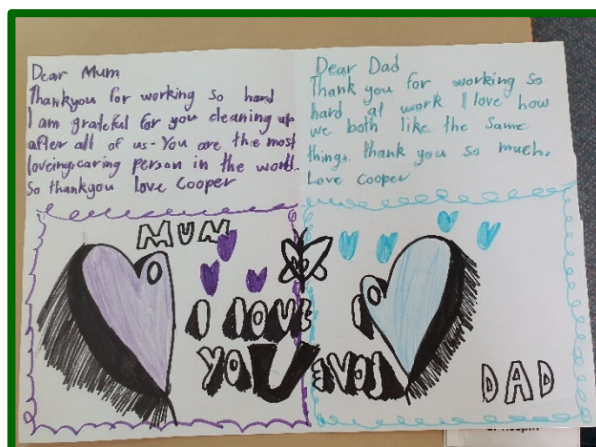 Dear Mum
Thankyou for working so hard
I am grateful for you cleaning up
after all of us- You are the most
loveing-caring person in the world.
So thankyou love Cooper
Dear Dad
Thank you for working so
hard at work I love how
we both like the same
things. thank you so much.
Love Cooper
MUM
I LOVE
YOU
LOVE
DAD